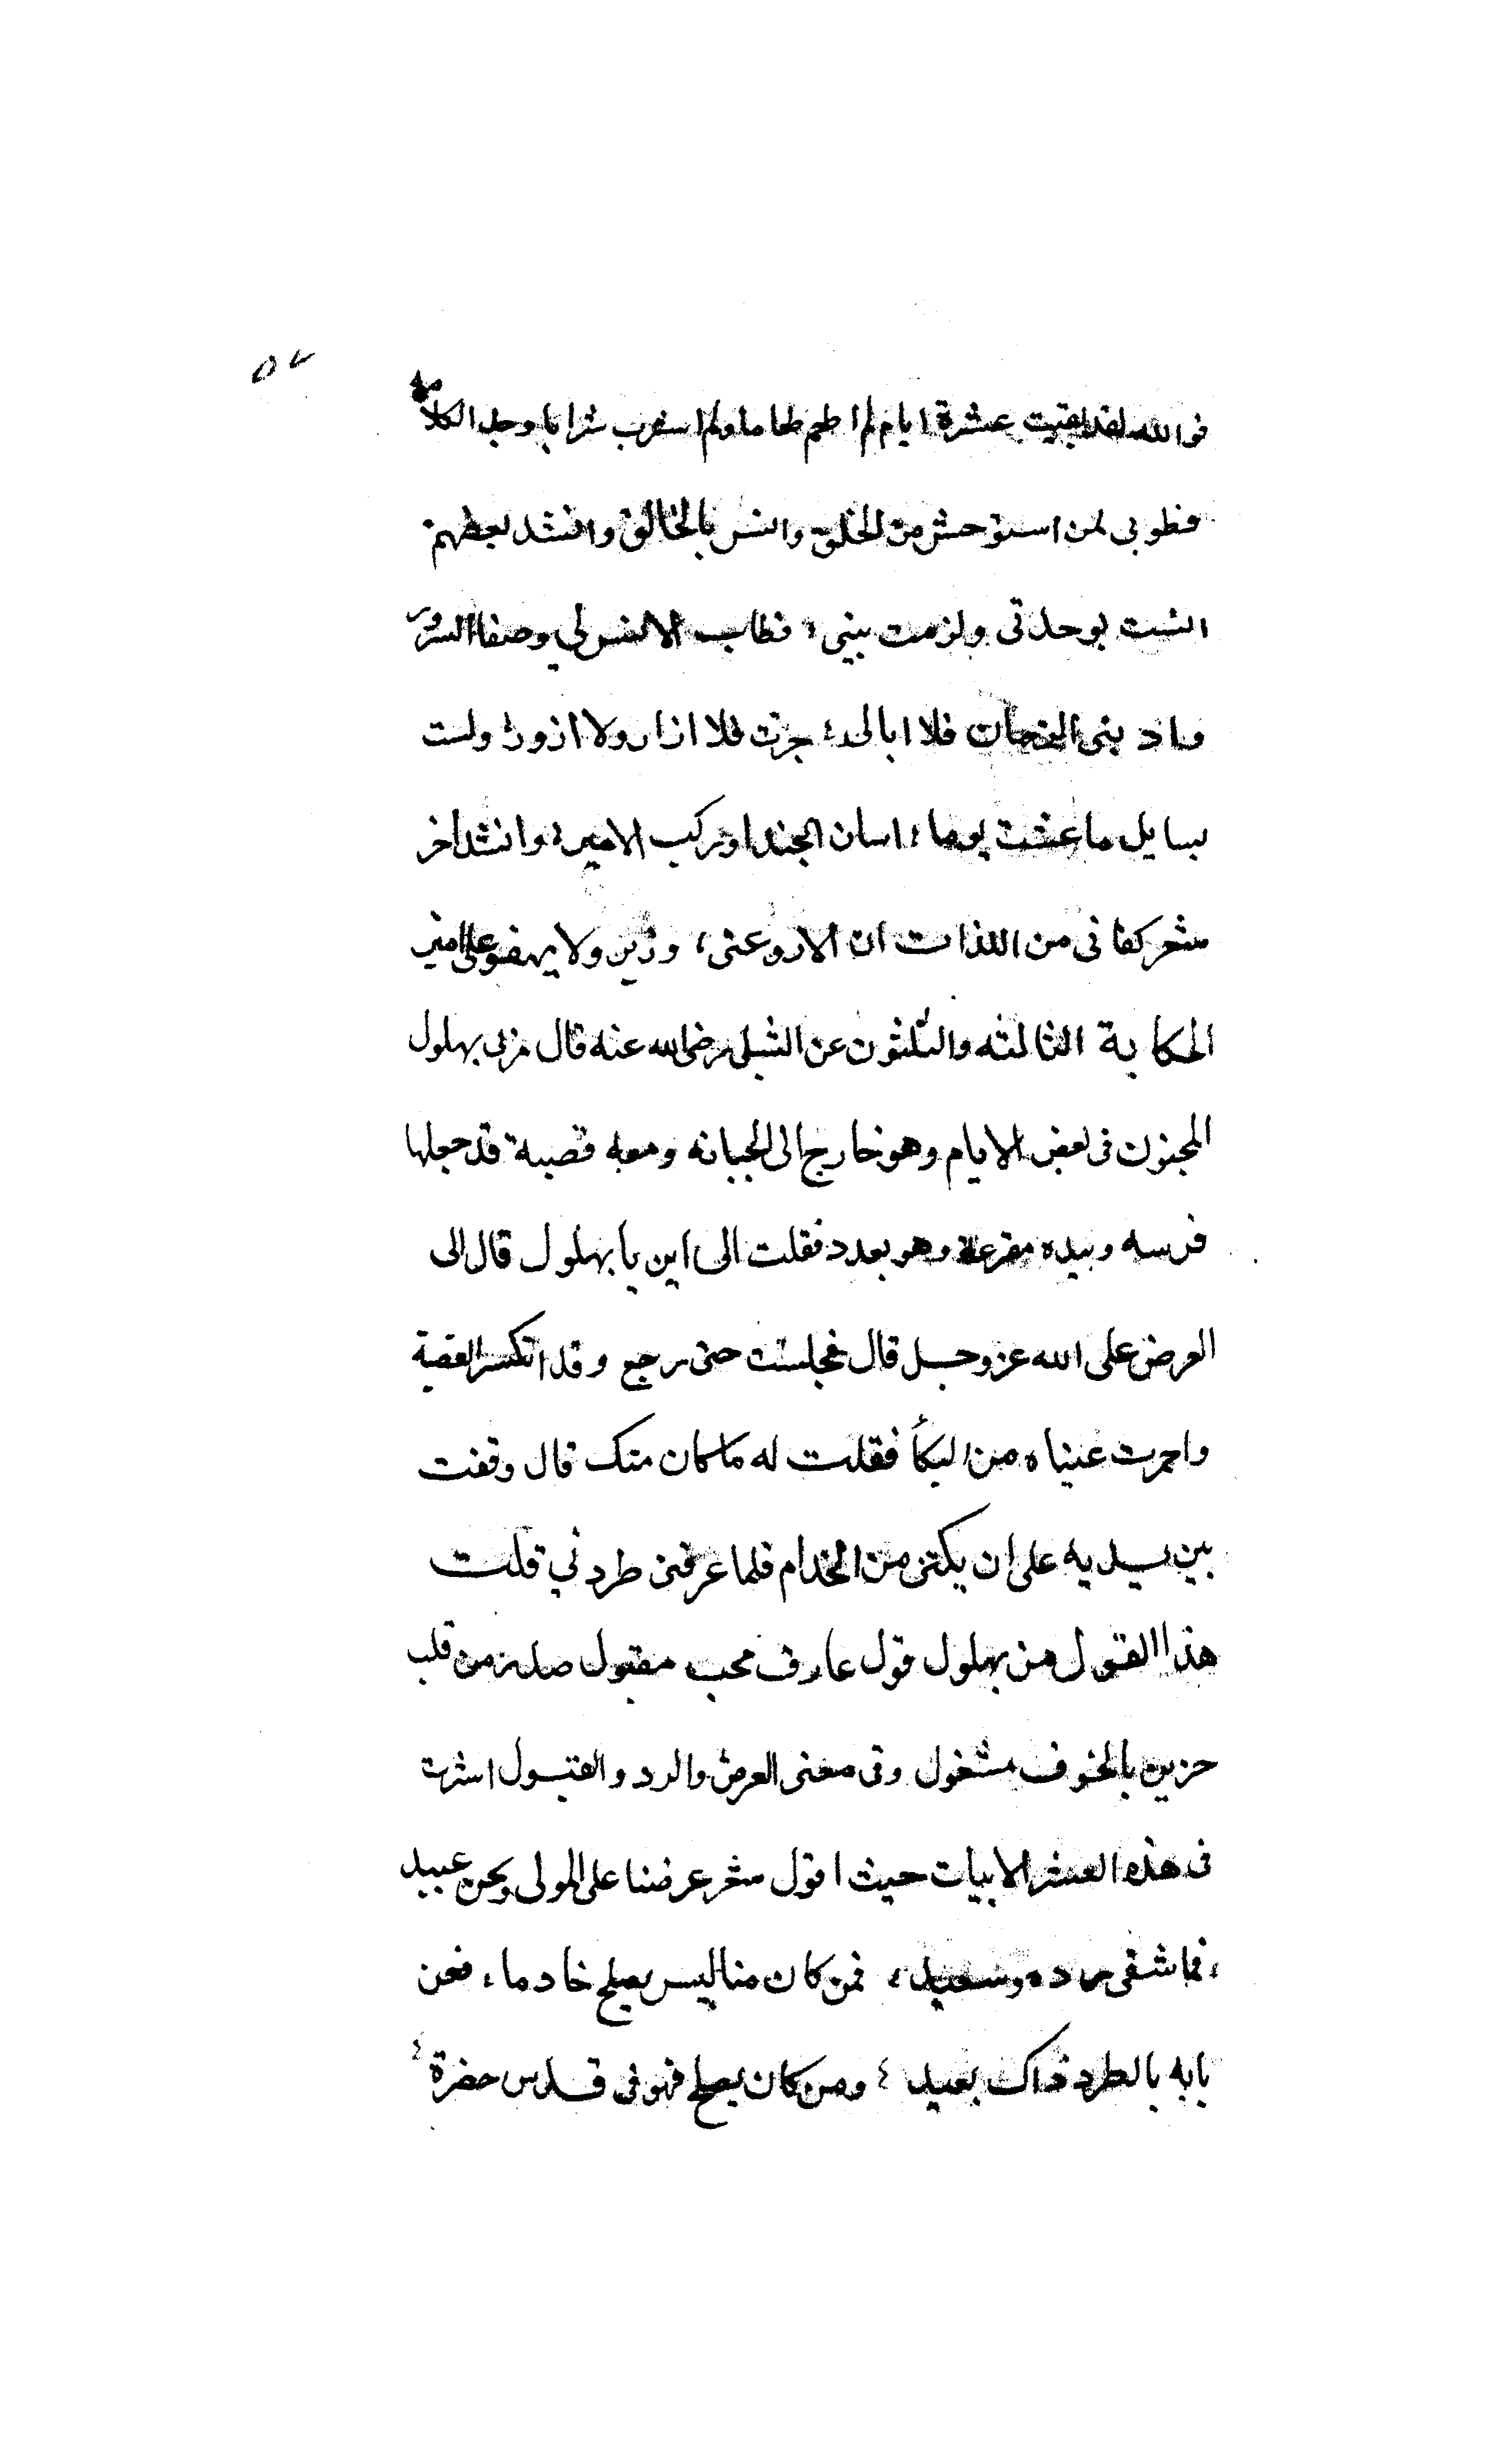 ٥٧
فوالله لقد بقيت عشرة ايام لم اطعم طعاما ولم اشرب شرابا وجل الكلامه
فطوبى لمن استوحش من الخلق وانس بالخالق وانشد بعضهم
انست بوحدتى ولزمت بيتى ؛ فطاب الانس لي وصفا السرور
وادبنى الزمان فلا ابالى ؛ هجرت فلا ازار ولا ازور ؛ ولست
بسايل ما عشت يوما ؛ اسار الجند او ركب الامير ؛ وانشد اخر
شعر كفانى من اللذات ان لا يروعنى ؛ وزير ولا يهفو على امير
الحكاية الثالثه والثلثون عن الشبلى رضى الله عنه قال مر بى بهلول
المجنون فى بعض الايام وهو خارج الى الجبانه ومعه قصبة قد جعلها
فرسه وبيده مقرعة وهو يعدد فقلت الى اين يا بهلول قال الى
العرض على الله عز وجل قال فجلست حتى رجع وقد انكسر القصبة
واحمرت عيناه من البكأ فقلت له ما كان منك قال وقفت
بين يديه على ان يكتنى من الخدام فلما عرفنى طردني قلت
هذا القول من بهلول قول عارف محب مقبول صدر من قلب
حزين بالخوف مشغول وفى معنى العرض والرد والقبول اشرت
فى هذه العشر الابيات حيث اقول شعر عرضنا على المولى ونحن عبيد
؛ فما شقى رده وسعيد ؛ فمن كان منا ليس يصلح خادما ؛ فعن
بابه بالطرد ذاك بعيد ؛ ومن كان يصلح فهو فى قدس حضرة ؛